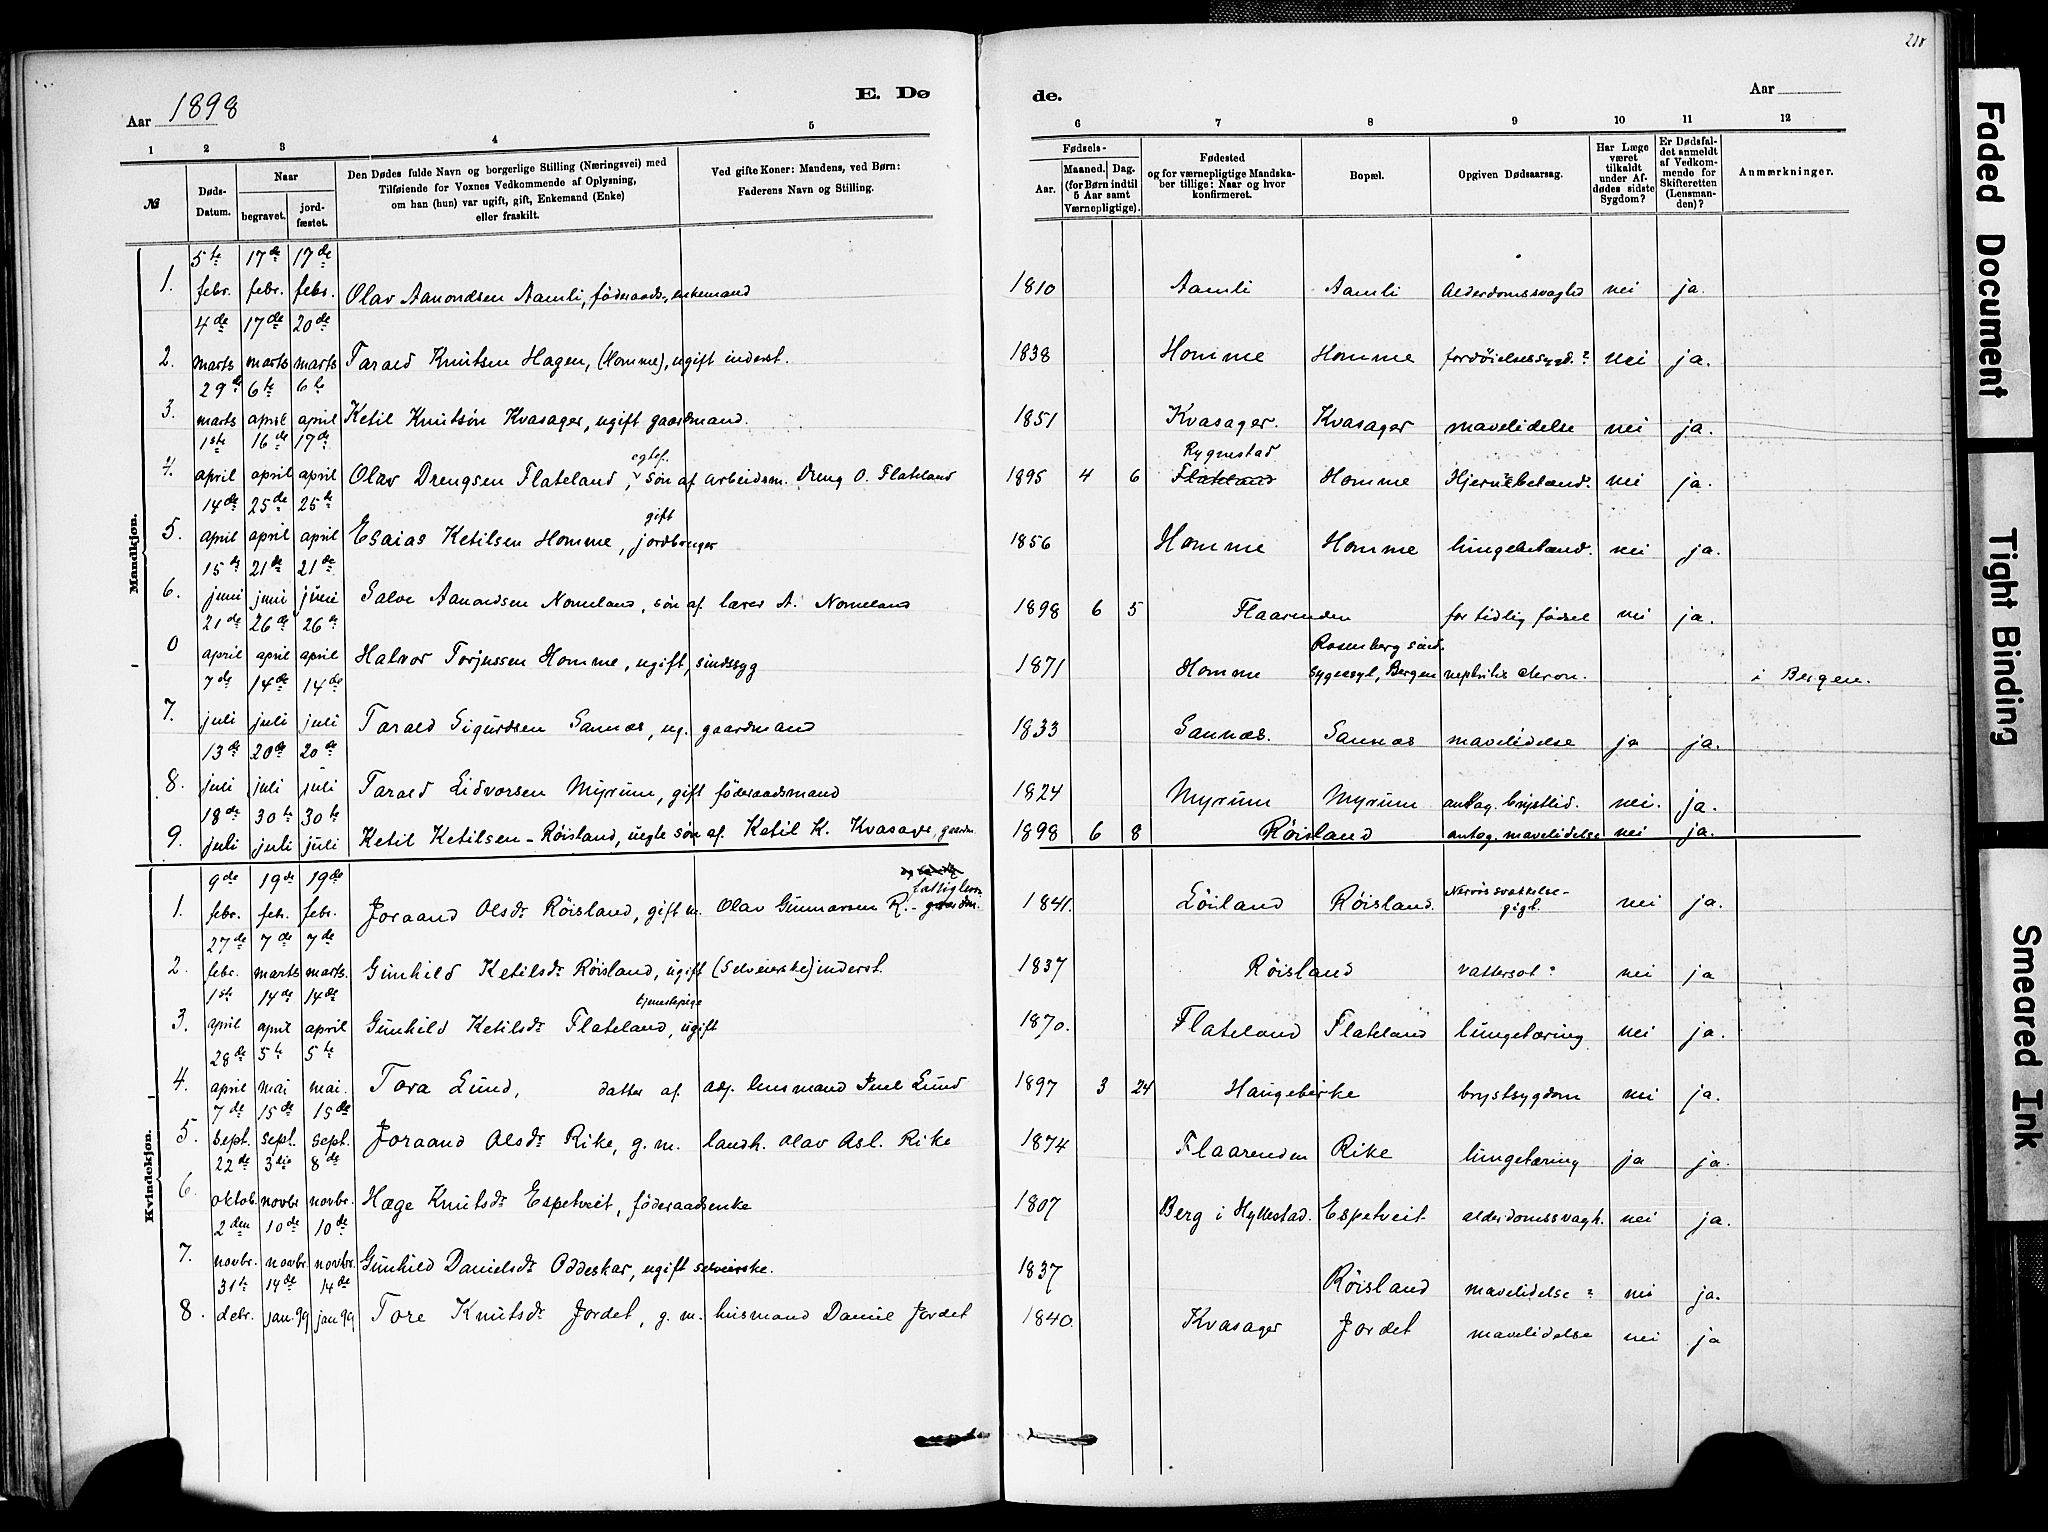 210
Aar 1898 E. Dø de. Aar
1 2 3 4 5 6 7 8 9 10 11 12
№
Døds-Datum.
Naar
begravet.
jord-fæstet.
Den Dødes fulde Navn og borgerlige Stilling (Næringsvei) med
Tilføiende for Voxnes Vedkommende af Oplysning,
om han (hun) var ugift, gift, Enkemand (Enke)
eller fraskilt.
Ved gifte Koner: Mandens, ved Børn:
Faderens Navn og Stilling.
Fødsels-
Aar.
Maaned. Dag.
(for Børn indtil
5 Aar samt
Værnepligtige).
Fødested
og for værnepligtige Mandska-
ber tillige: Naar og hvor
konfirmeret.
Bopæl.
Opgiven Dødsaarsag.
Har Læge
været
tilkaldt
under Af-
dødes sidste
Sygdom?
Er Dødsfal-
det anmeldt
af Vedkom-
mende for
Skifteretten
(Lensman-
den)?
Anmærkninger.
Mandkjøn.
5te 17de 17de
1. febr. febr. febr. Olav Aanondsen Aamli, føderaads, enkemand 1810 Aamli Aamli Alderdomssvaghd nei ja.
4de 17de 20de
2. marts marts marts Tarald Knutsen Hagen, (Homme), ugift inderst. 1838 Homme Homme fordøielsessygd.? nei ja.
29de 6te 6te
3. marts april april Ketil Knutsøn Kvasager, ugift gaardmand. 1851 Kvasager. Kvasager mavelidelse nei ja.
1ste 16de 17de egtef. Rygnestad
4. april april april Olav Drengsen Flateland, søn af arbeidsm. Dreng O. Flateland 1895 4 6 Flateland Homme Hjernebetænd. nei ja.
14de 25de 25te gift
5. april april april Esaias Ketilsen Homme, jordbruger 1856 Homme Homme lungebetænd. nei ja.
15de 21de 21de
6. juni juni juni Salve Aanondsen Nomeland, søn af lærer A. Nomeland 1898 6 5 Flaarenden for tidlig fødsel nei ja.
21de 26de 26de Rosenberg sind.
0 april april april Halvor Torjussen Homme, ugift, sindssyg 1871 Homme sygeasyl, Bergen nephritis chron. i Bergen.
7de 14de 14de
7. juli juli juli Tarald Sigurdsen Sannæs, ug. gaardmand 1833 Sannæs. Sannæs mavelidelse ja ja.
13de 20de 20de
8. juli juli juli Tarald Lidvorsen Myrum, gift føderaadsmand 1824 Myrum Myrum antag. brystlid. nei. ja.
18de 30te 30te
9. juli juli juli Ketil Ketilsen-Røisland, uegte søn af Ketil K. Kvasager, gaardm. 1898 6 8 Røisland antag. mavelidelse nei ja.
Kvindekjøn.
9de 19de 19de fattiglem
1. febr. febr. febr. Joraand Olsdr Røisland, gift m. Olav Gunnarsen R.- gaardm. 1841. Løiland Røisland. Nervøs svækkelse- gigt. nei ja.
27de 7de 7de
2. febr. marts marts. Gunhild Ketilsdr Røisland, ugift (Selveierske) inderst. 1837 Røisland vattersot? nei ja
1ste 14de 14de tjenestepige
3. april april april Gunhild Ketilsdr Flateland, ugift 1870. Flateland Flateland lungetæring nei ja.
28de 5te 5te
4. april mai mai. Tora Lund, datter af husmand Juel Lund 1897 3 24 Haugebirke brystsygdom nei ja.
7de 15de 15de
5. sept. sept. sept. Joraand Olsdr Rike, g. m. landh. Olav Asl. Rike 1874 Flaarenden Rike lungetæring ja ja.
22de 3die 8de
6. oktob. novbr novbr. Hæge Knutsdr Espetveit, føderaadsenke 1807 Berg i Hyllestad. Espetveit alderdomssvagh. nei ja.
2den 10de 10de
7. novbr. novbr. novbr. Gunhild Danielsdr Oddeskar, ugift selveierske. 1837 Røisland mavelidelse? nei ja.
31te 14de 14de
8. debr. jan. 99 jan 99 Tore Knutsdr Jordet, g. m. husmand Daniel Jordet 1840. Kvasager Jordet mavelidelse nei ja
Faded Document
Tight Binding
Smeared Ink